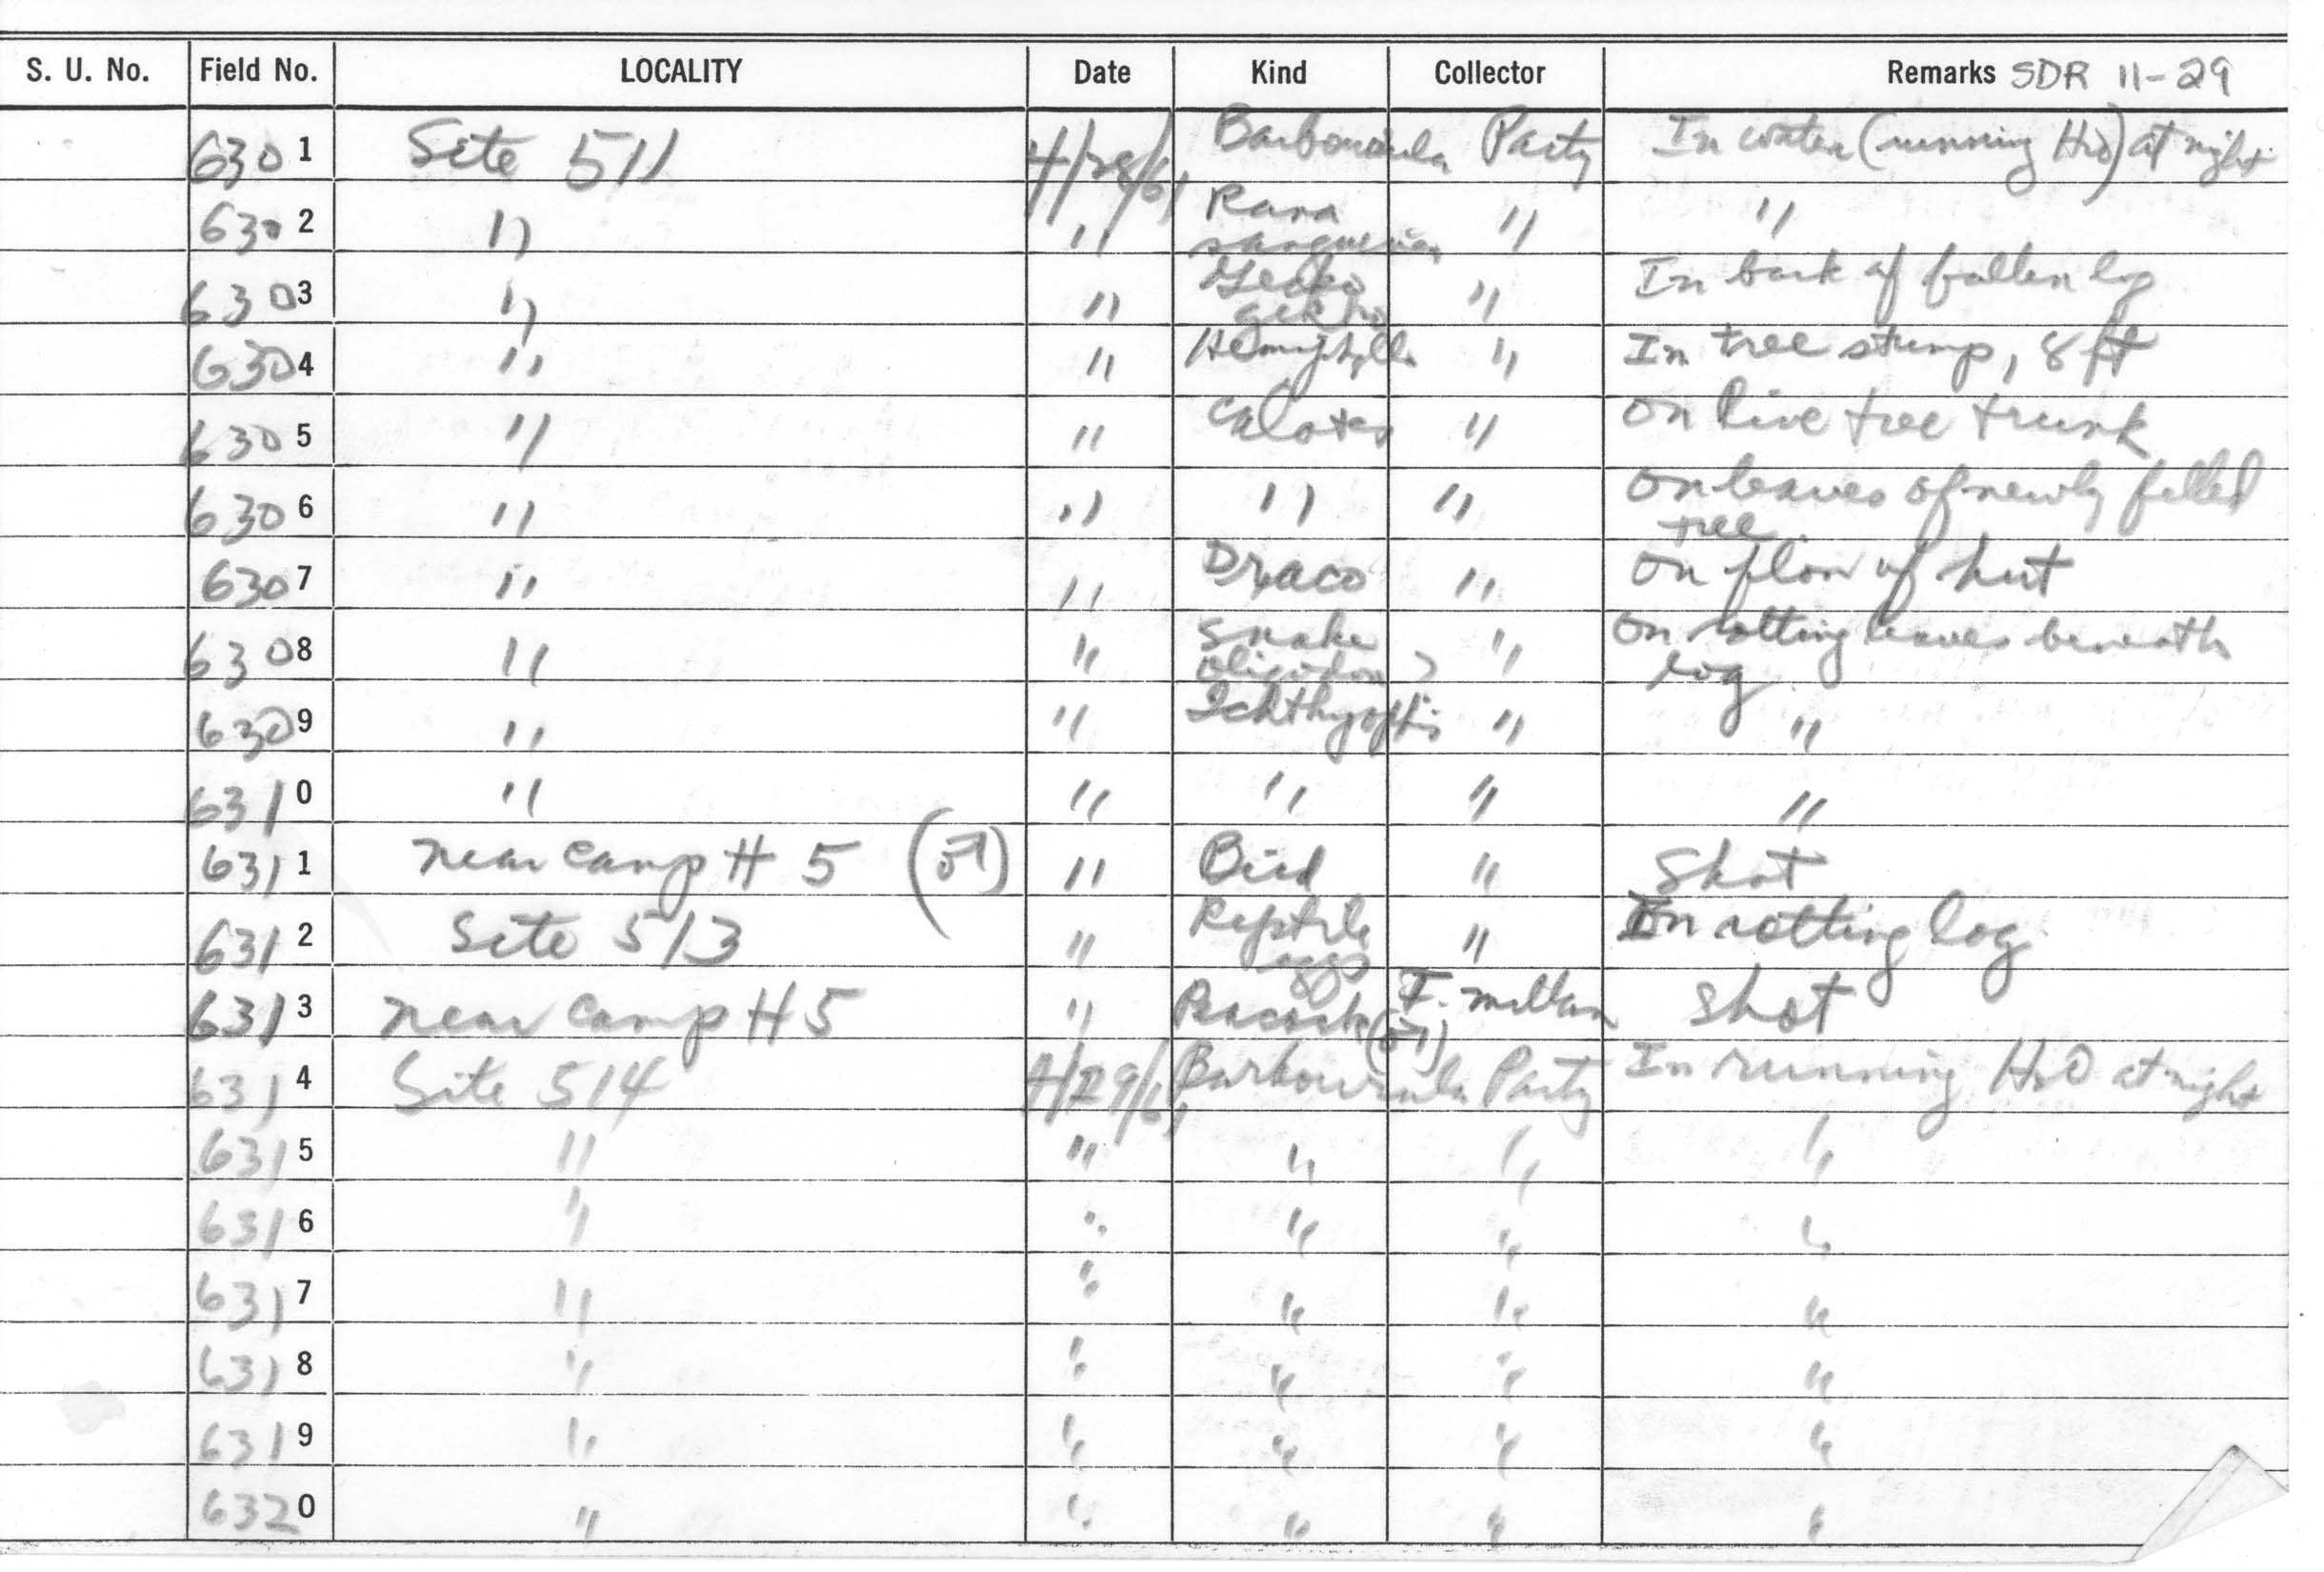 S. U. No. Field No. LOCALITY Date Kind Collector Remarks SDR 11-29
6301 Site 511 4/28/61 Barbourula Party In water (running H2O) at night
6302 " " Rana " "
6303 " " Gekko gekko " In bark of fallen log
6304 " " " In tree stump, 8 ft
6305 " " Calotes " On live tree trunk
6306 " " " " On leaves of newly felled
tree
6307 " " Draco " On floor of hut
6308 " " Snake " On rotting leaves beneath
Oligodon? log
6309 " " Ichthyophis " "
6310 " " " " "
6311 near camp # 5 (51) " Bird " Shot
6312 Site 513 " Reptile " In rotting log
eggs
6313 near camp # 5 " Peacock (51) F. Millan Shot
6314 Site 514 4/29/61 Barbourula Party In running H2O at night
6315 " " " " "
6316 " " " " "
6317 " " " " "
6318 " " " " "
6319 " " " " "
6320 " " " " "